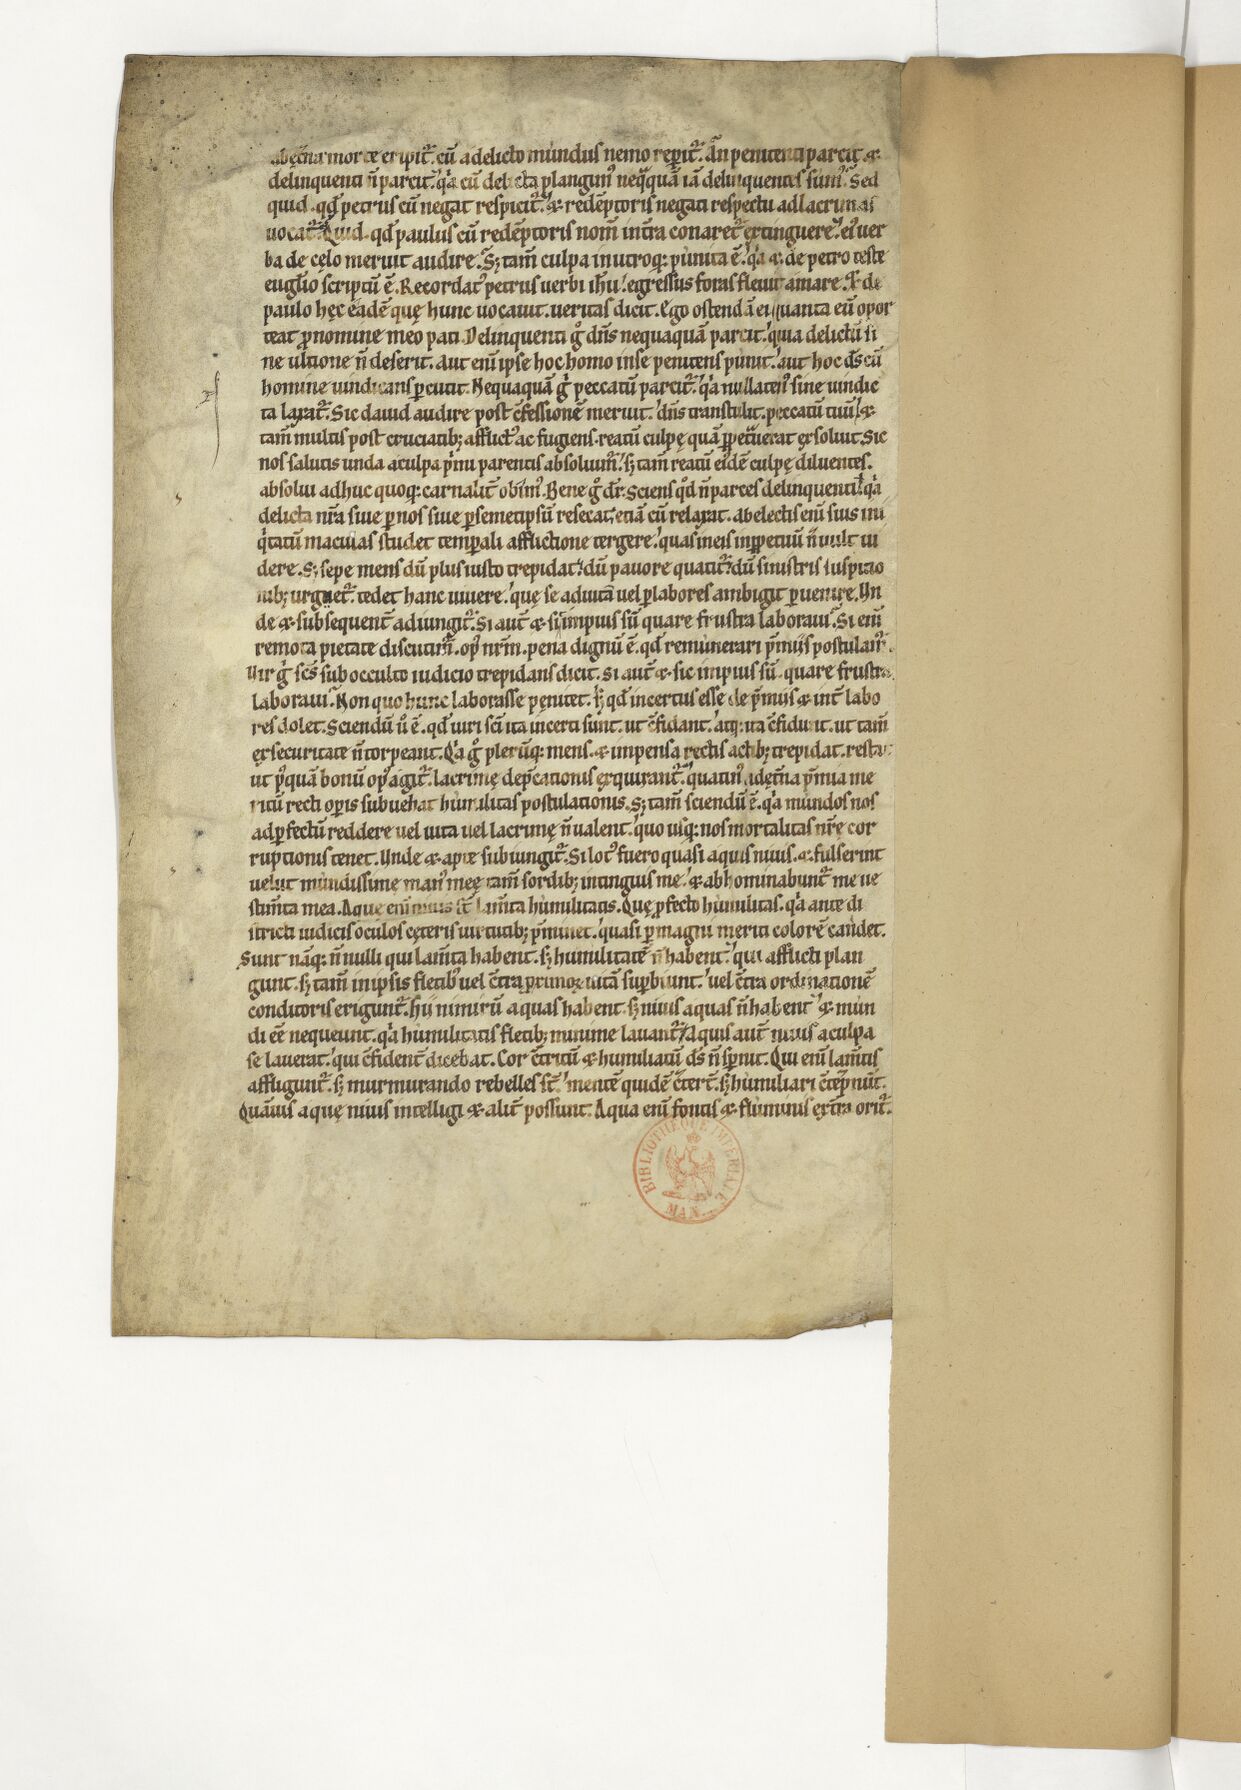 ab ęt̄na morte eripit᷑. cū a delicto mundus nemo reꝑit᷑. An penitenti parcit. &
delinquenti n̄ parcit. q̄a cū delicta plangimꝰ neq̄quā iā delinquentes sumꝰ. Sed
quid. qd̄ petrus cū negat respicit᷑. & redēptoris negati respectu ad lacrimas
uocat᷑. Quid. qd̄ paulus cū redēptoris nom̄ in t̄ra conaret᷑ extinguere. eiꝰ uer
ba de cęlo meruit audire. Sꝫ tam̄ culpa in utroq; punita ē. q̄a & de petro teste
euglio scriptū ē. Recordatꝰ petrus uerbi ih̄u. egressus foras fleuit amare. Et de
paulo hęc eadē quę hunc uocauit. ueritas dicit. Ego ostendā ei quanta eū opor
teat ꝓ nomine meo pati. Delinquenti gͦ dn̄s nequaquā parcit. quia delictū si
ne ultione n̄ deserit. Aut eni ipse hoc homo in se penitens punit. aut hoc d̄s cū
homine uindicans ꝑcutit. Nequaquā gͦ peccatū parcit᷑. q̄a nullatenꝰ sine uindic
ta laxat᷑. Sic dauid audire post c̄fessionē meruit. dn̄s transtulit. peccatū tuū. &
tam̄ multis post cruciatibꝫ afflictꝰ ac fugiens. reatū culpę quā ꝑpet᷑uerat exsoluit. Sic
nos salutis unda a culpa p̄mi parentis absoluim᷑. sꝫ tam̄ reatū eiꝰdē culpę diluentes.
absolui adhuc quoq; carnalit̄ obimꝰ. Bene gͦ dr̄. Sciens qd̄ n̄ parces delinquenti. q̄a
delicta nr̄a siue ꝑ nos siue ꝑ semetipsū resecat. etiā cū relaxat. ab electis eni suis ini
q̄tatū maculas studet temꝑali afflictione tergere. quas in eis in ꝑpetuū n̄ uult ui
dere. Sꝫ sepe mens dū plus iusto trepidat. dū pauore quatit᷑. dū sinistris suspitio
nibꝫ urguet᷑. tedet hanc uiuere. quę se ad uitā uel ꝑ labores ambigit ꝑuenire. Un
de & subsequent̄ adiungit᷑. Si aut̄ & sic impius sū quare frustra laboraui. Si eni
remota pietate discutim᷑. opꝰ nrm̄. pena dignū ē. qd̄ remunerari p̄miis postulam᷑.
Uir gͦ sc̄s sub occulto iudicio trepidans dicit. Si aut̄ & sic impius sū. quare frustra
laboraui. Non quo hunc laborasse penitet. sꝫ qd̄ incertus esse de p̄miis & int̄ labo
res dolet. Sciendū u̓ ē. qd̄ uiri sc̄i ita incerti sunt. ut c̄fidant. atq; ita c̄fidunt. ut tam̄
ex securitate n̄ torpeant. Q̄a gͦ plerūq; mens. & impensa rectis actibꝫ trepidat. restat
ut pꝰquā bonū opꝰ agit᷑. lacrimę dep̄cationis exquirant᷑. quatinꝰ ad ęt̄na p̄mia me
ritū recti oꝑis subuehat humilitas postulationis. Sꝫ tam̄ sciendū ē. q̄a mundos nos
ad ꝑfectū reddere uel uita uel lacrimę n̄ ualent. quo usq; nos mortalitas nr̄e cor
ruptionis tenet. Unde & apte subiungit᷑. Si lotꝰ fuero quasi aquis niuis. & fulserint
uelut mundissime manꝰ meę. tam̄ sordibꝫ intinguis me. & abhominabunt᷑ me ue
stim̄ta mea. Aquę eni niuis st̄ lam̄ta humilitatis. Quę ꝓfecto humilitas. q̄a ante di
stricti iudicis oculos cęteris uirtutibꝫ p̄minet. quasi ꝑ magni meriti colorē candet.
Sunt nāq; n̄ nulli qui lam̄ta habent. sꝫ humilitatē n̄ habent. qui afflicti plan
gunt. sꝫ tam̄ in ipsis fletibꝰ uel c̄tra ꝓximoꝝ uitā suꝑbiunt. uel c̄tra ordinationē
conditoris erigunt᷑. hii nimirū aquas habent. sꝫ niuis aquas n̄ habent. & mun
di eē nequeunt. q̄a humilitatis fletibꝫ minime lauant᷑. Aquis aut̄ niuis a culpa
se lauerat. qui c̄fident̄ dicebat. Cor c̄tritū & humiliatū d̄s n̄ sꝑnit. Qui eni lam̄tis
affligunt᷑. sꝫ murmurando rebelles st̄. mentē quidē c̄tert̄. sꝫ humiliari c̄tēpnūt.
Quāuis aquę niuis intelligi & alit̄ possunt. Aqua eni fontis & fluminis ex t̄ra orit᷑.
BIBLIOTHÈQUE IMPÉRIALE
MAN.